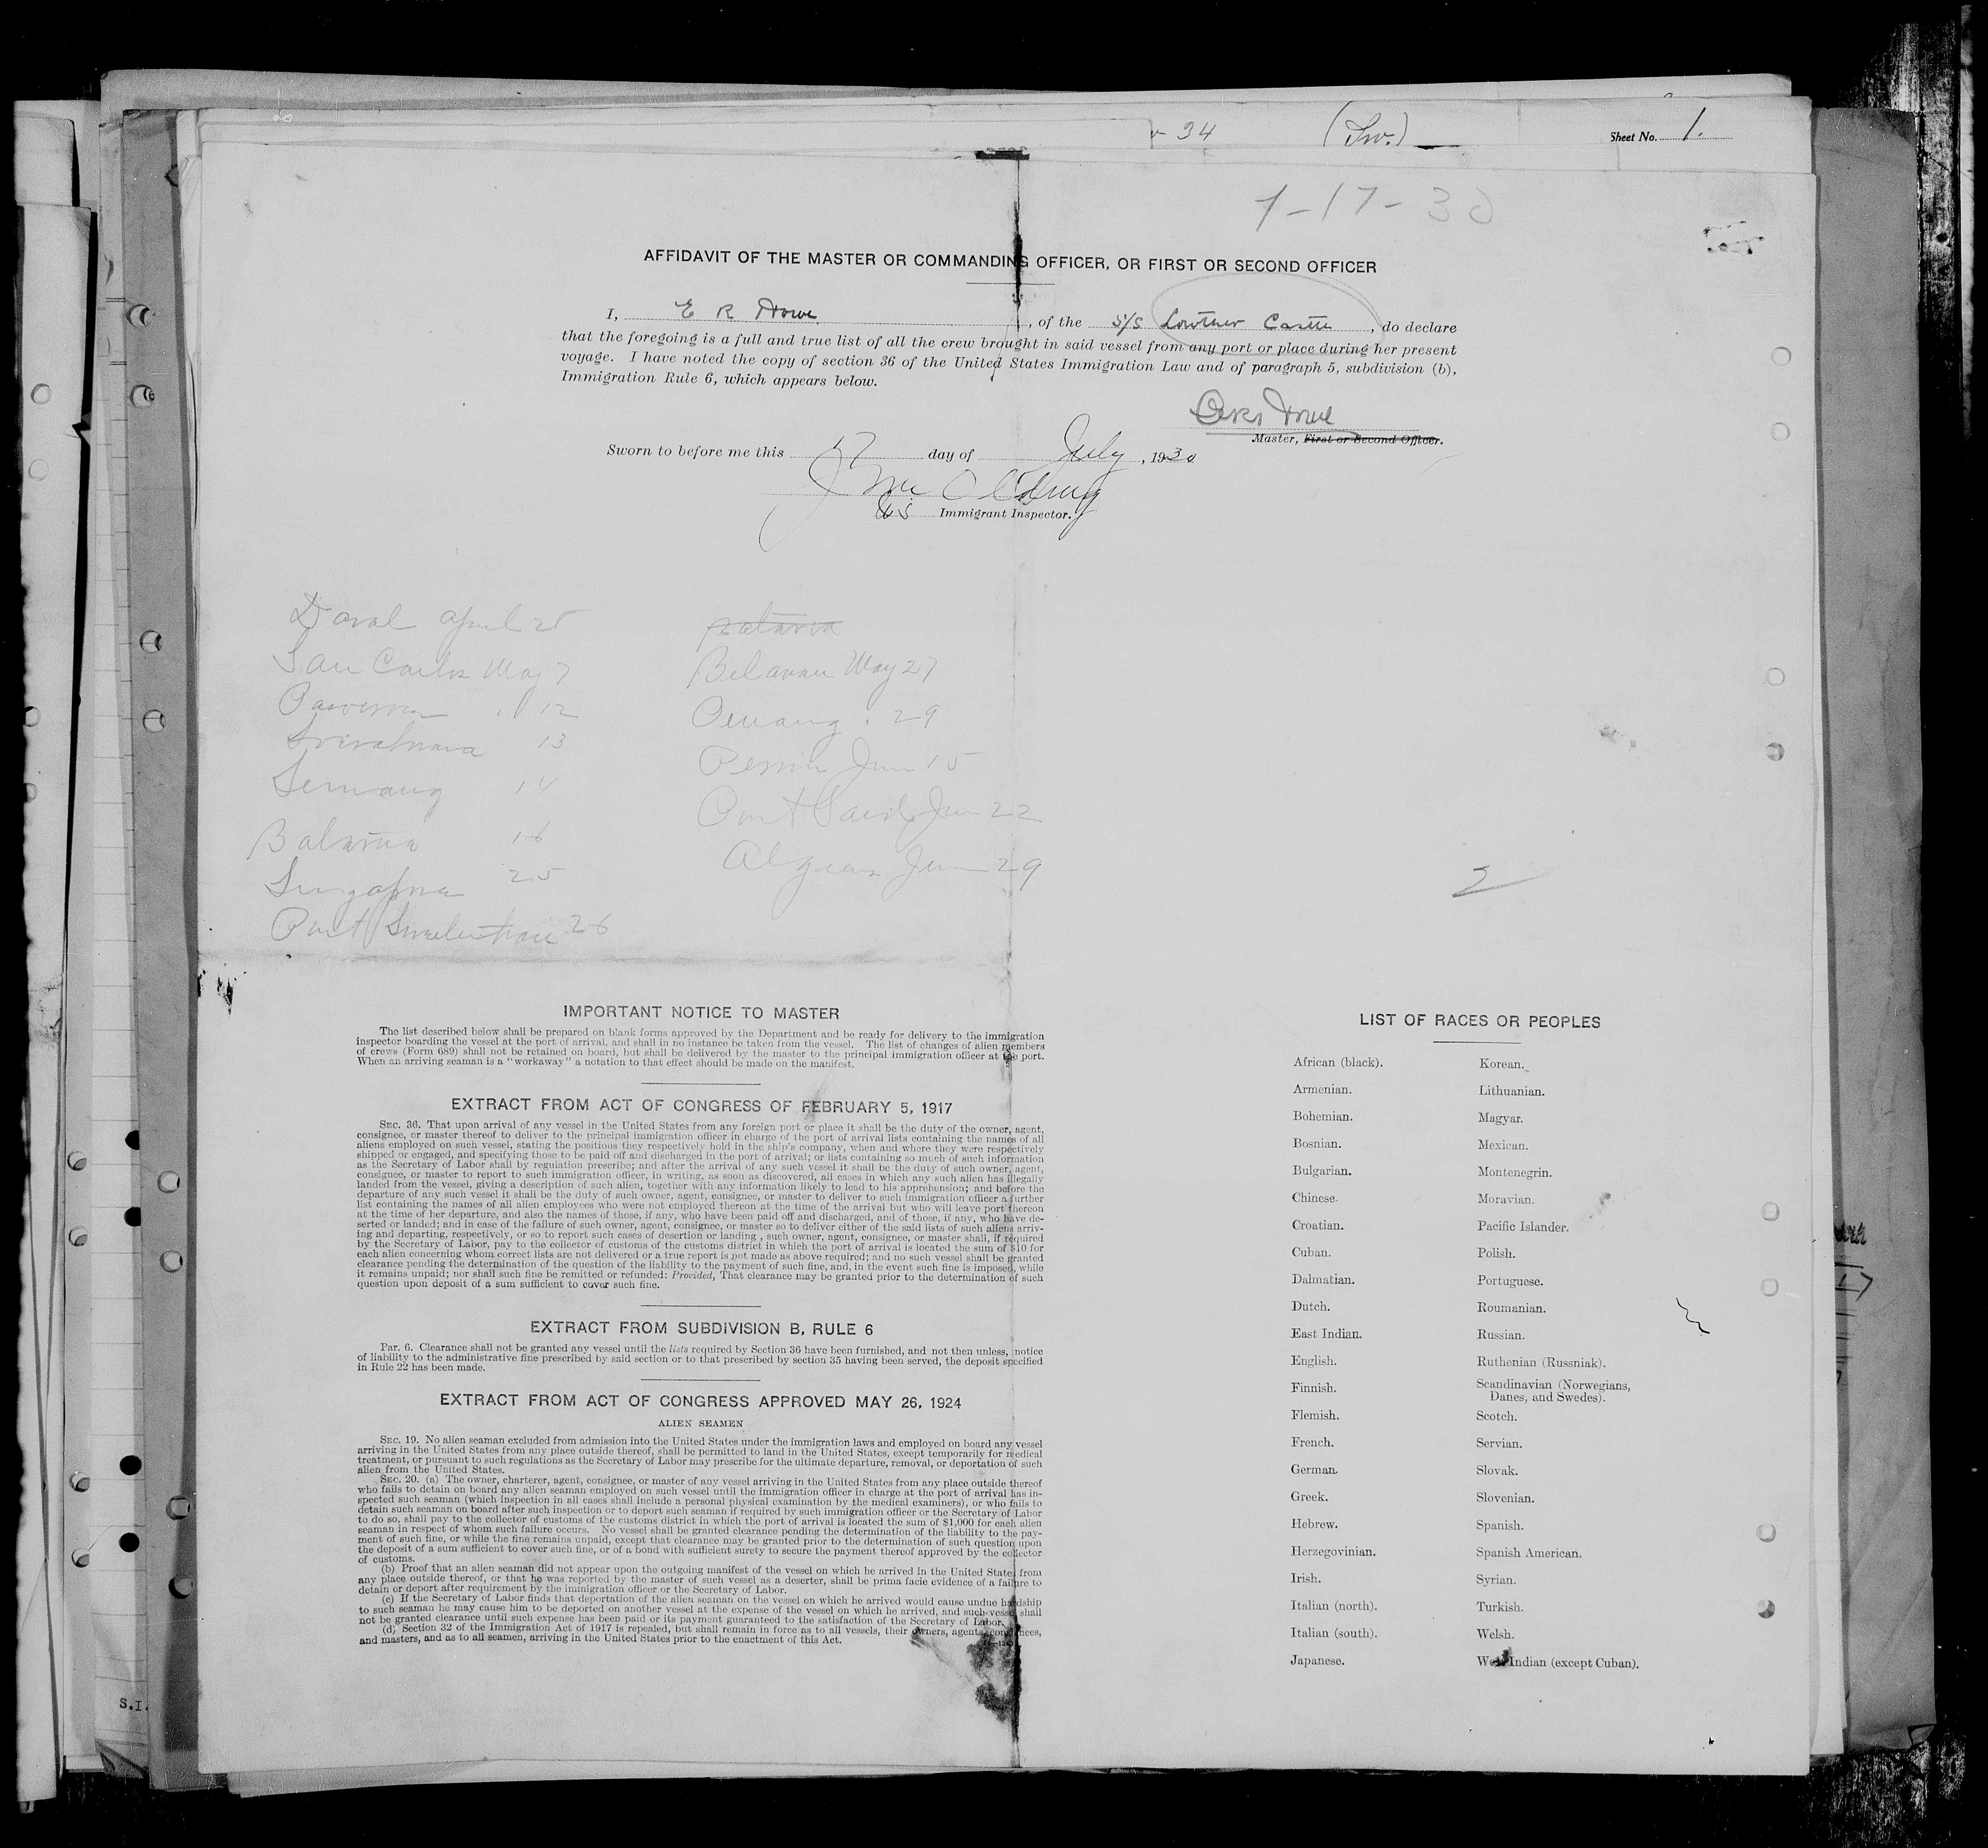 34 (Sw.) Sheet No. 1.
7-17-30
AFFIDAVIT OF THE MASTER OR COMMANDING OFFICER, OR FIRST OR SECOND OFFICER
I, E R Howe, of the S/S Lowther Castle, do declare
that the foregoing is a full and true list of all the crew brought in said vessel from any port or place during her present
voyage. I have noted the copy of section 36 of the United States Immigration Law and of paragraph 5, subdivision (b),
Immigration Rule 6, which appears below.
Howe
Master, First or Second Officer.
Sworn to before me this 17 day of July, 1930
US Immigrant Inspector.
Davao April 25
San Carlos May 7
12
13
Semarang 14
Batavia 16
Singapore 25
Port Swettenham 26
Batavia
Belawan May 27
Penang 29
Perim Jun 15
Port Said Jun 22
Algiers Jun 29
2
IMPORTANT NOTICE TO MASTER
The list described below shall be prepared on blank forms approved by the Department and be ready for delivery to the immigration
inspector boarding the vessel at the port of arrival, and shall in no instance be taken from the vessel. The list of changes of alien members
of crews (Form 689) shall not be retained on board, but shall be delivered by the master to the principal immigration officer at the port.
When an arriving seaman is a "workaway" a notation to that effect should be made on the manifest.
EXTRACT FROM ACT OF CONGRESS OF FEBRUARY 5, 1917
SEC. 36. That upon arrival of any vessel in the United States from any foreign port or place it shall be the duty of the owner, agent,
consignee, or master thereof to deliver to the principal immigration officer in charge of the port of arrival lists containing the names of all
aliens employed on such vessel, stating the positions they respectively hold in the ship's company, when and where they were respectively
shipped or engaged, and specifying those to be paid off and discharged in the port of arrival; or lists containing so much of such information
as the Secretary of Labor shall by regulation prescribe; and after the arrival of any such vessel it shall be the duty of such owner, agent,
consignee, or master to report to such immigration officer, in writing, as soon as discovered, all cases in which any such alien has illegally
landed from the vessel, giving a description of such alien, together with any information likely to lead to his apprehension; and before the
departure of any such vessel it shall be the duty of such owner, agent, consignee, or master to deliver to such immigration officer a further
list containing the names of all alien employees who were not employed thereon at the time of the arrival but who will leave port thereon
at the time of her departure, and also the names of those, if any, who have been paid off and discharged, and of those, if any, who have de-
serted or landed; and in case of the failure of such owner, agent, consignee, or master so to deliver either of the said lists of such aliens arriv-
ing and departing, respectively, or so to report such cases of desertion or landing, such owner, agent, consignee, or master shall, if required
by the Secretary of Labor, pay to the collector of customs of the customs district in which the port of arrival is located the sum of $10 for
each alien concerning whom correct lists are not delivered or a true report is not made as above required; and no such vessel shall be granted
clearance pending the determination of the question of the liability to the payment of such fine, and, in the event such fine is imposed, while
it remains unpaid; nor shall such fine be remitted or refunded: Provided, That clearance may be granted prior to the determination of such
question upon deposit of a sum sufficient to cover such fine.
EXTRACT FROM SUBDIVISION B, RULE 6
Par. 6. Clearance shall not be granted any vessel until the lists required by Section 36 have been furnished, and not then unless, notice
of liability to the administrative fine prescribed by said section or to that prescribed by section 35 having been served, the deposit specified
in Rule 22 has been made.
EXTRACT FROM ACT OF CONGRESS APPROVED MAY 26, 1924
ALIEN SEAMEN
SEC. 19. No alien seaman excluded from admission into the United States under the immigration laws and employed on board any vessel
arriving in the United States from any place outside thereof, shall be permitted to land in the United States, except temporarily for medical
treatment, or pursuant to such regulations as the Secretary of Labor may prescribe for the ultimate departure, removal, or deportation of such
alien from the United States.
SEC. 20. (a) The owner, charterer, agent, consignee, or master of any vessel arriving in the United States from any place outside thereof
who fails to detain on board any alien seaman employed on such vessel until the immigration officer in charge at the port of arrival has in-
spected such seaman (which inspection in all cases shall include a personal physical examination by the medical examiners), or who fails to
detain such seaman on board after such inspection or to deport such seaman if required by such immigration officer or the Secretary of Labor
to do so, shall pay to the collector of customs of the customs district in which the port of arrival is located the sum of $1,000 for each alien
seaman in respect of whom such failure occurs. No vessel shall be granted clearance pending the determination of the liability to the pay-
ment of such fine, or while the fine remains unpaid, except that clearance may be granted prior to the determination of such question upon
the deposit of a sum sufficient to cover such fine, or of a bond with sufficient surety to secure the payment thereof approved by the collector
of customs.
(b) Proof that an alien seaman did not appear upon the outgoing manifest of the vessel on which he arrived in the United States from
any place outside thereof, or that he was reported by the master of such vessel as a deserter, shall be prima facie evidence of a failure to
detain or deport after requirement by the immigration officer or the Secretary of Labor.
(c) If the Secretary of Labor finds that deportation of the alien seaman on the vessel on which he arrived would cause undue hardship
to such seaman he may cause him to be deported on another vessel at the expense of the vessel on which he arrived, and such vessel shall
not be granted clearance until such expense has been paid or its payment guaranteed to the satisfaction of the Secretary of Labor.
(d) Section 32 of the Immigration Act of 1917 is repealed, but shall remain in force as to all vessels, their owners, agents, consignees,
and masters, and as to all seamen, arriving in the United States prior to the enactment of this Act.
LIST OF RACES OR PEOPLES
African (black).
Armenian.
Bohemian.
Bosnian.
Bulgarian.
Chinese.
Croatian.
Cuban.
Dalmatian.
Dutch.
East Indian.
English.
Finnish.
Flemish.
French.
German.
Greek.
Hebrew.
Herzegovinian.
Irish.
Italian (north).
Italian (south).
Japanese.
Korean.
Lithuanian.
Magyar.
Mexican.
Montenegrin.
Moravian.
Pacific Islander.
Polish.
Portuguese.
Roumanian.
Russian.
Ruthenian (Russniak).
Scandinavian (Norwegians,
Danes, and Swedes).
Scotch.
Servian.
Slovak.
Slovenian.
Spanish.
Spanish American.
Syrian.
Turkish.
Welsh.
West Indian (except Cuban).
S.I.